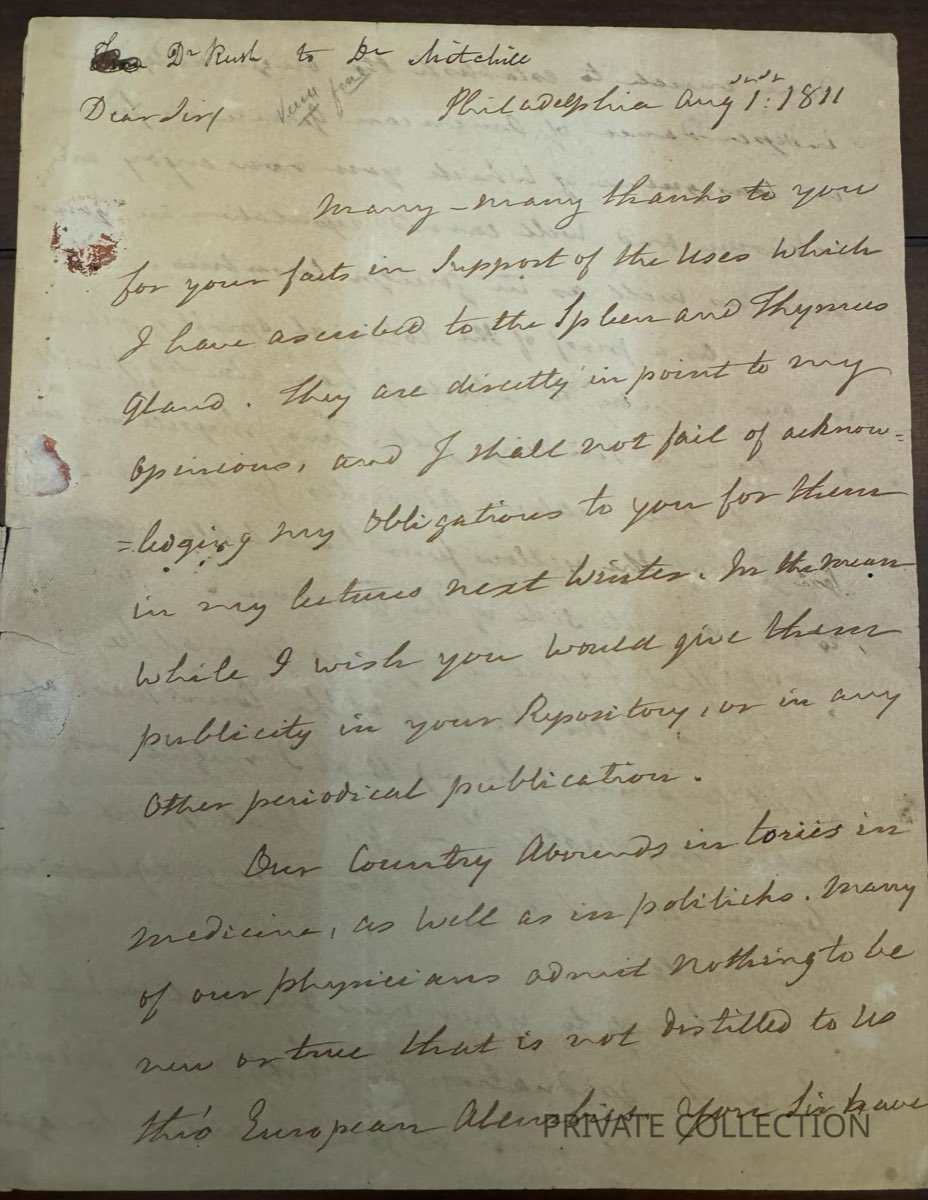 Dr Rush to Dr Mitchill
Dear Sir/ Philadelphia Aug 1: 1811
Many - many thanks to you
for your facts in Support of the Uses which
I have ascribed to the Spleen and Thymus
gland. They are directly in point to my
Opinions, and I shall not fail of acknow=
=ledging my Obligations to you for them
in my lectures next Winter. In the mean
while I wish you would give them
publicity in your Repository, or in any
Other periodical publication.
Our Country Abounds in tories in
medicine, as well as in politicks. Many
of our physicians admit Nothing to be
new or true that is not distilled to Us
thro' European Alembics. You Sir have
PRIVATE COLLECTION